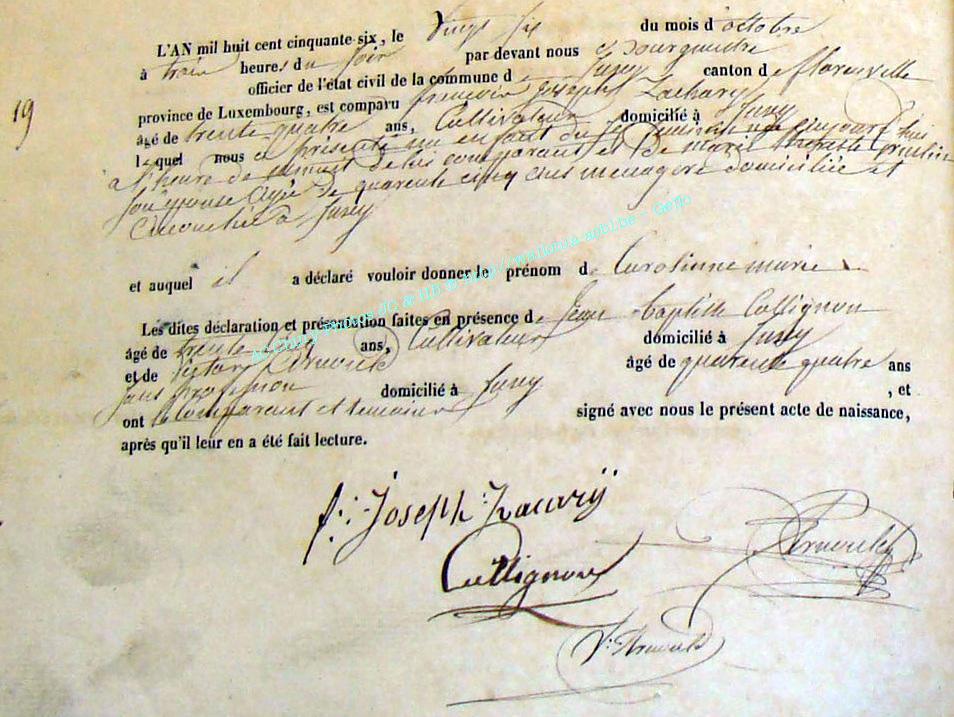 L'AN mil huit cent cinquante-six, le Vingt six du mois d'octobre
à trois heures du soir par devant nous
officier de l'état civil de la commune de Jusey canton de florenville
province de Luxembourg, est comparu francois Joseph Zachary
âgé de trente quatre ans, Cultivateur domicilié à Jusey
lequel nous a présenté un enfant du féminin né aujourd'hui
a heure de de lui comparant et de marie
son épouse agée de quarente cinq ans menagere domiciliée et
à Jusey
et auquel il a déclaré vouloir donner le prénom de Carolinne marie
Les dites déclaration et présentation faites en présence de Jean Baptiste Collignon
âgé de trente cinq ans, Cultivateur domicilié à Jusey
et de Victor Arnould âgé de quarente quatre ans
sans profession domicilié à Jusey , et
ont le Comparant et temoins signé avec nous le présent acte de naissance,
après qu'il leur en a été fait lecture.
19
f: Joseph Zacarij
Collignon
Arnould
V: Arnould